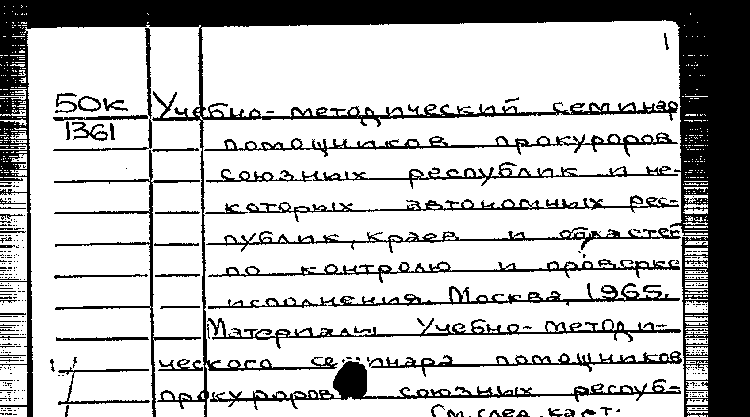 1
50К Учебно-методический семинар
1361
помощников прокуроров
союзных республик и не-
которых автономных рес-
публик, краев и областей
по контролю и проверке
исполнения. Москва, 1965.
Материалы Учебно-методи-
ческого семинара помощников
прокуроров союзных респуб-
См. след. карт.